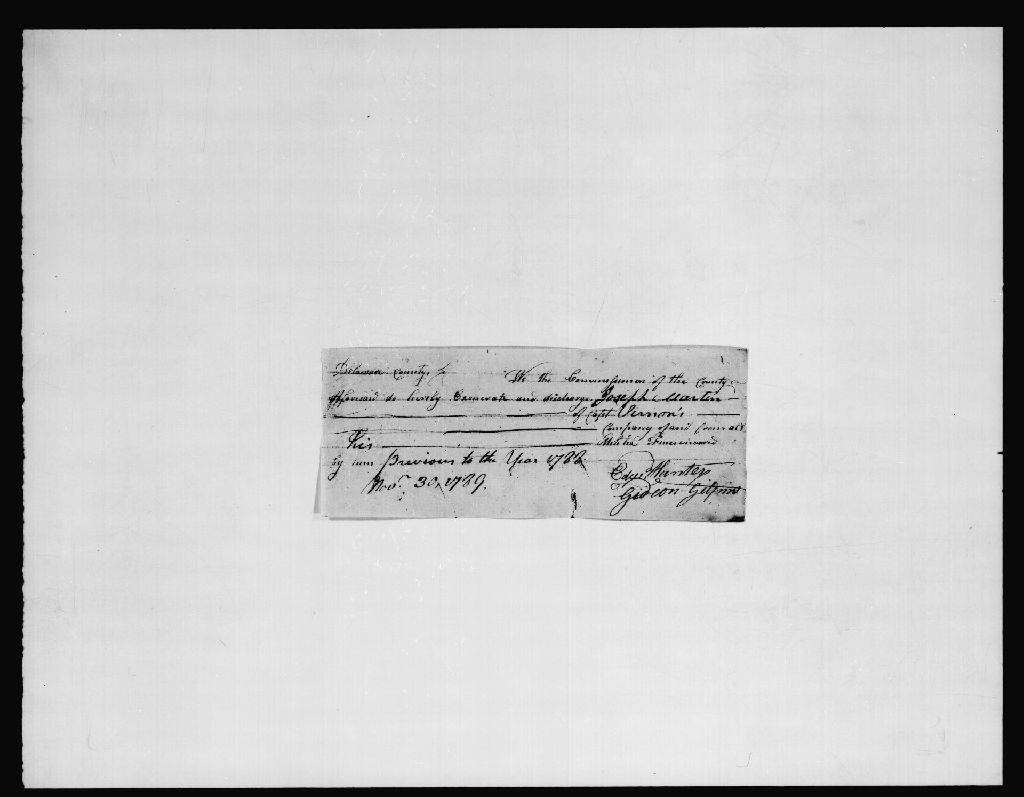 Delaware County, ss
We the Commissioners of the County
afforesaid do hereby Exonerate and discharge Joseph Martin
of Capt Vernon's
Company of and from all
his Militia Fines incured
by him previous to the Year 1788
Novr. 30, 1789.
Edgr Hunter
Gideon Gilpin